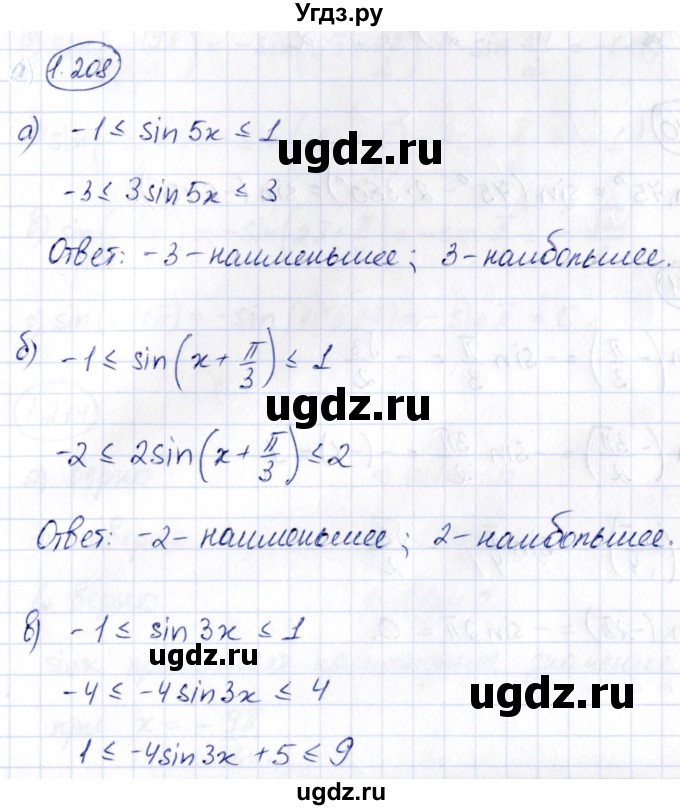 Угдз.ру
1.208
а) -1 ≤ sin 5x ≤ 1
ugdz.ru
-3 ≤ 3 sin 5x ≤ 3
Ответ: -3 - наименьшее; 3 - наибольшее.
б) -1 ≤ sin(x + π/3) ≤ 1
ugdz.ru
-2 ≤ 2sin(x + π/3) ≤ 2
Ответ: -2 - наименьшее; 2 - наибольшее.
в) -1 ≤ sin 3x ≤ 1
ugdz.ru
-4 ≤ -4 sin 3x ≤ 4
1 ≤ -4 sin 3x + 5 ≤ 9
ugdz.ru